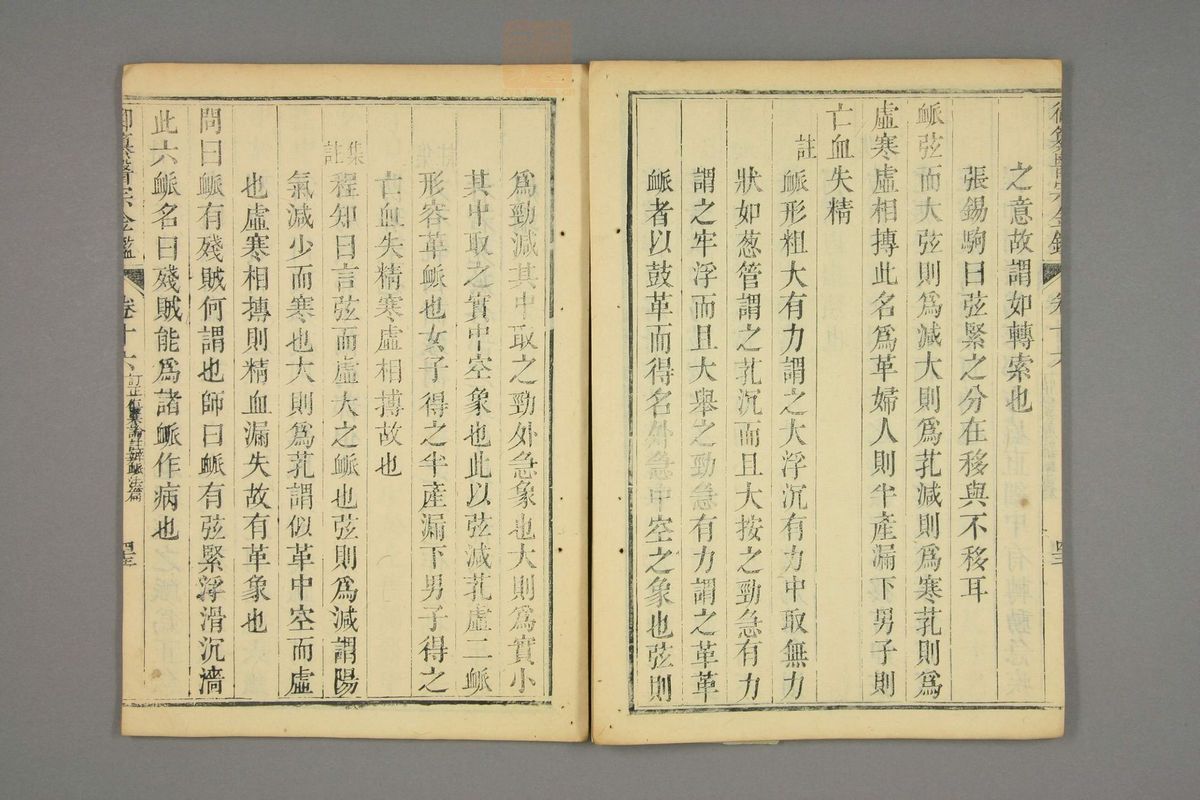 之意故謂如轉索也
張錫駒曰弦緊之分在移與不移耳
脈弦而大弦則爲減大則爲芤減則爲寒芤則爲
虛寒虛相搏此名爲革婦人則半產漏下男子則
亡血失精
註脈形粗大有力謂之大浮沉有力中取無力
狀如葱管謂之芤沉而且大按之勁急有力
謂之牢浮而且大舉之勁急有力謂之革革
脈者以鼓革而得名外急中空之象也弦則
爲勁減其中取之勁外急象也大則爲實小
其中取之實中空象也此以弦減芤虛二脈
形容革脈也女子得之半產漏下男子得之
亡血失精寒虛相搏故也
集註程知曰言弦而虛大之脈也弦則爲減謂陽
氣減少而寒也大則爲芤謂似革中空而虛
也虛寒相搏則精血漏失故有革象也
問曰脈有殘賊何謂也師曰脈有弦緊浮滑沉濇
此六脈名曰殘賊能爲諸脈作病也
御纂醫宗金鑑 卷十六 訂正傷寒論註辨脈法篇